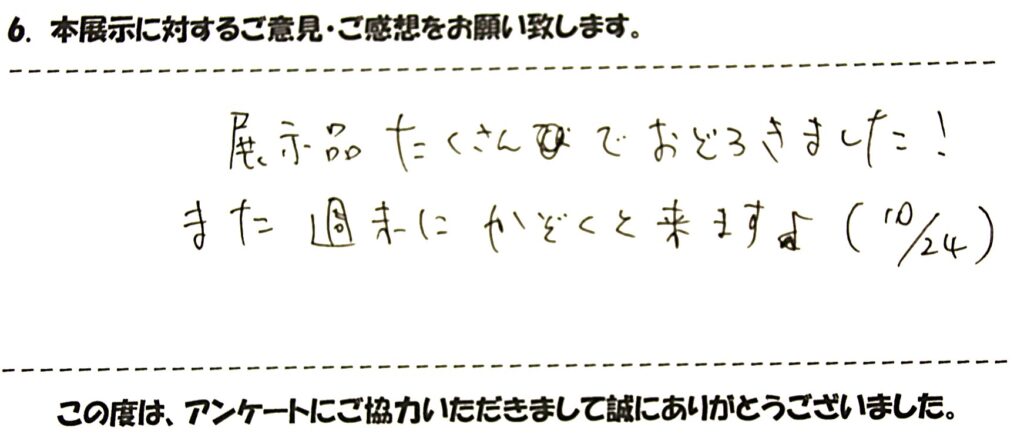 6. 本展示に対するご意見・ご感想をお願い致します。
展示品たくさんでおどろきました！
また週末にかぞくと来ます♪（10/24）
この度は、アンケートにご協力いただきまして誠にありがとうございました。